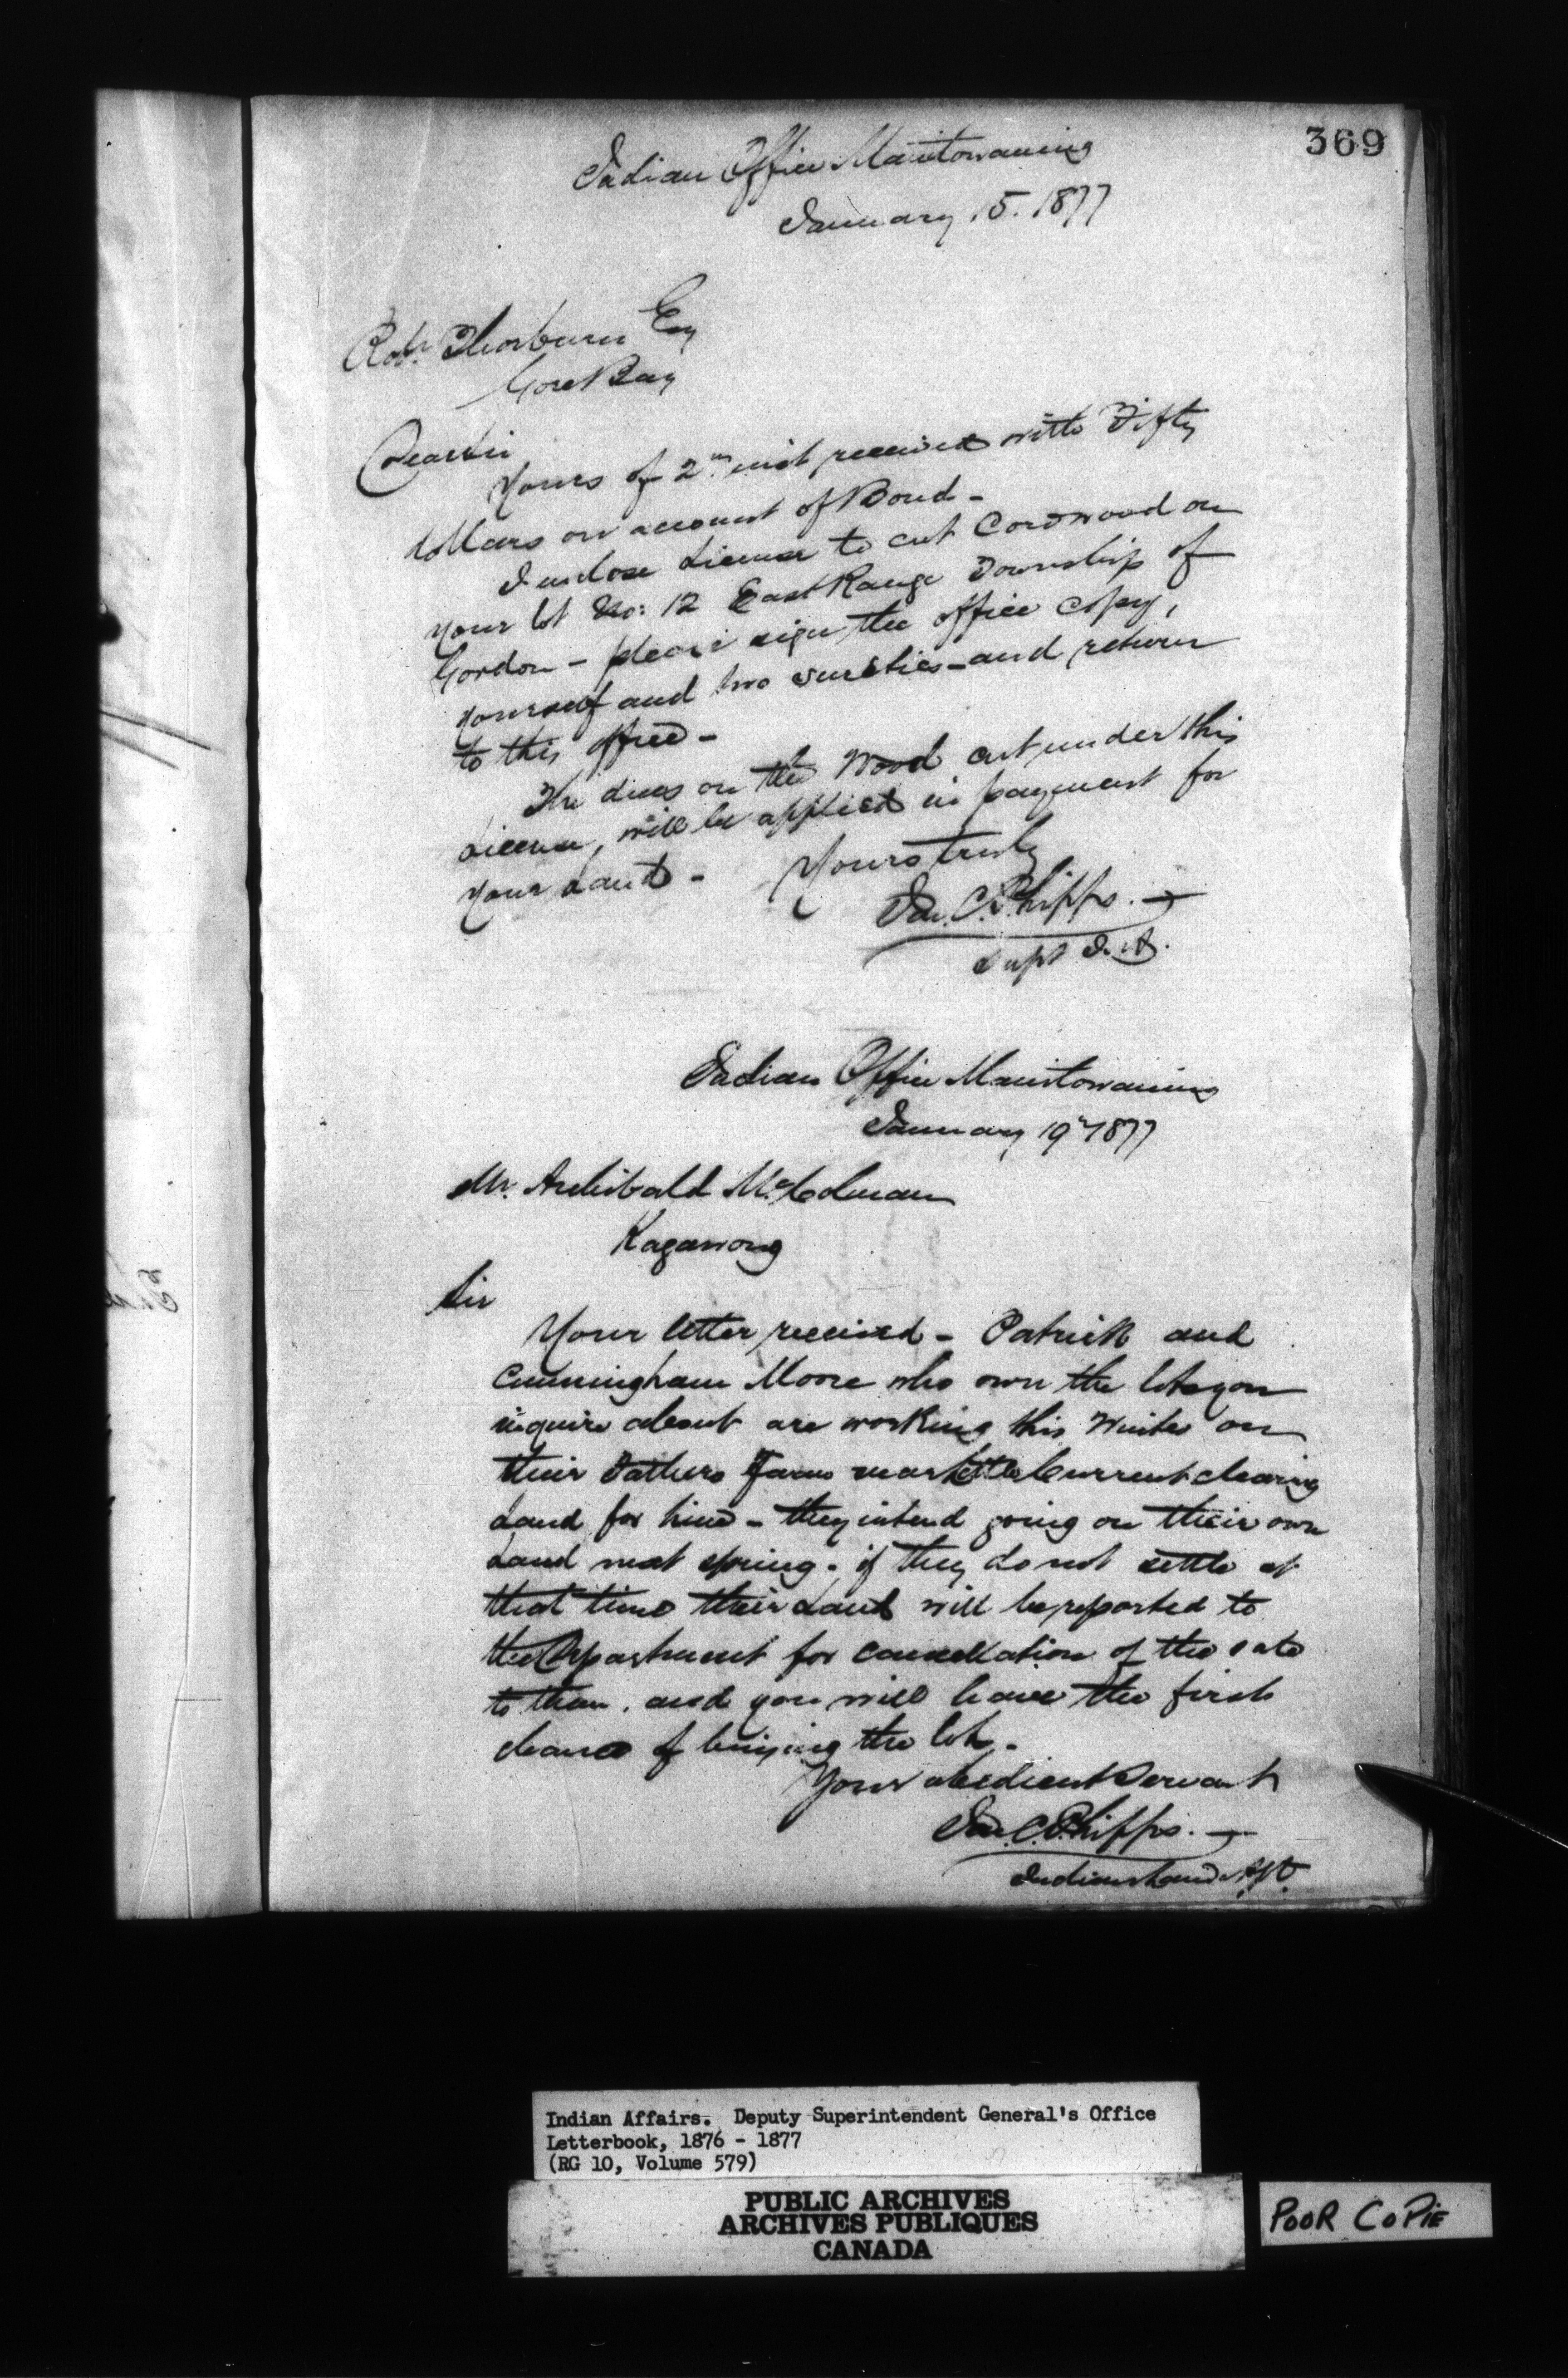 369
Indian Office Manitowaning
January 15. 1877
Robt. Thorburn Esq
Gore Bay
Dear Sir
Yours of 2nd inst received with Fifty
dollars on account of Bond -
I enclose License to cut Cordwood on
your lot No: 12 East Range Township of
Gordon - please sign the office copy,
yourself and two sureties - and return
to this office -
The dues on the Wood cut under this
License, will be applied in payment for
your Land -
Yours truly
Jas. C. Phipps.
Supt I. A.
Indian Office Manitowaning
January 19th 1877
Mr. Archibald McColman
Kagawong
Sir
Your letter received - Patrick and
Cunningham Moore who own the lots you
inquire about are working this Winter on
their Fathers Farm near Little Current clearing
Land for him - they intend going on their own
Land next spring. if they do not settle at
that time their Land will be reported to
the Department for cancellation of the sale
to them. and you will have the first
chance of buying the lots.
Your obedient Servant
Jas. C. Phipps.
Indian Land Agt.
Indian Affairs. Deputy Superintendent General's Office
Letterbook, 1876 - 1877
(RG 10, Volume 579)
PUBLIC ARCHIVES
ARCHIVES PUBLIQUES
CANADA
POOR COPIE